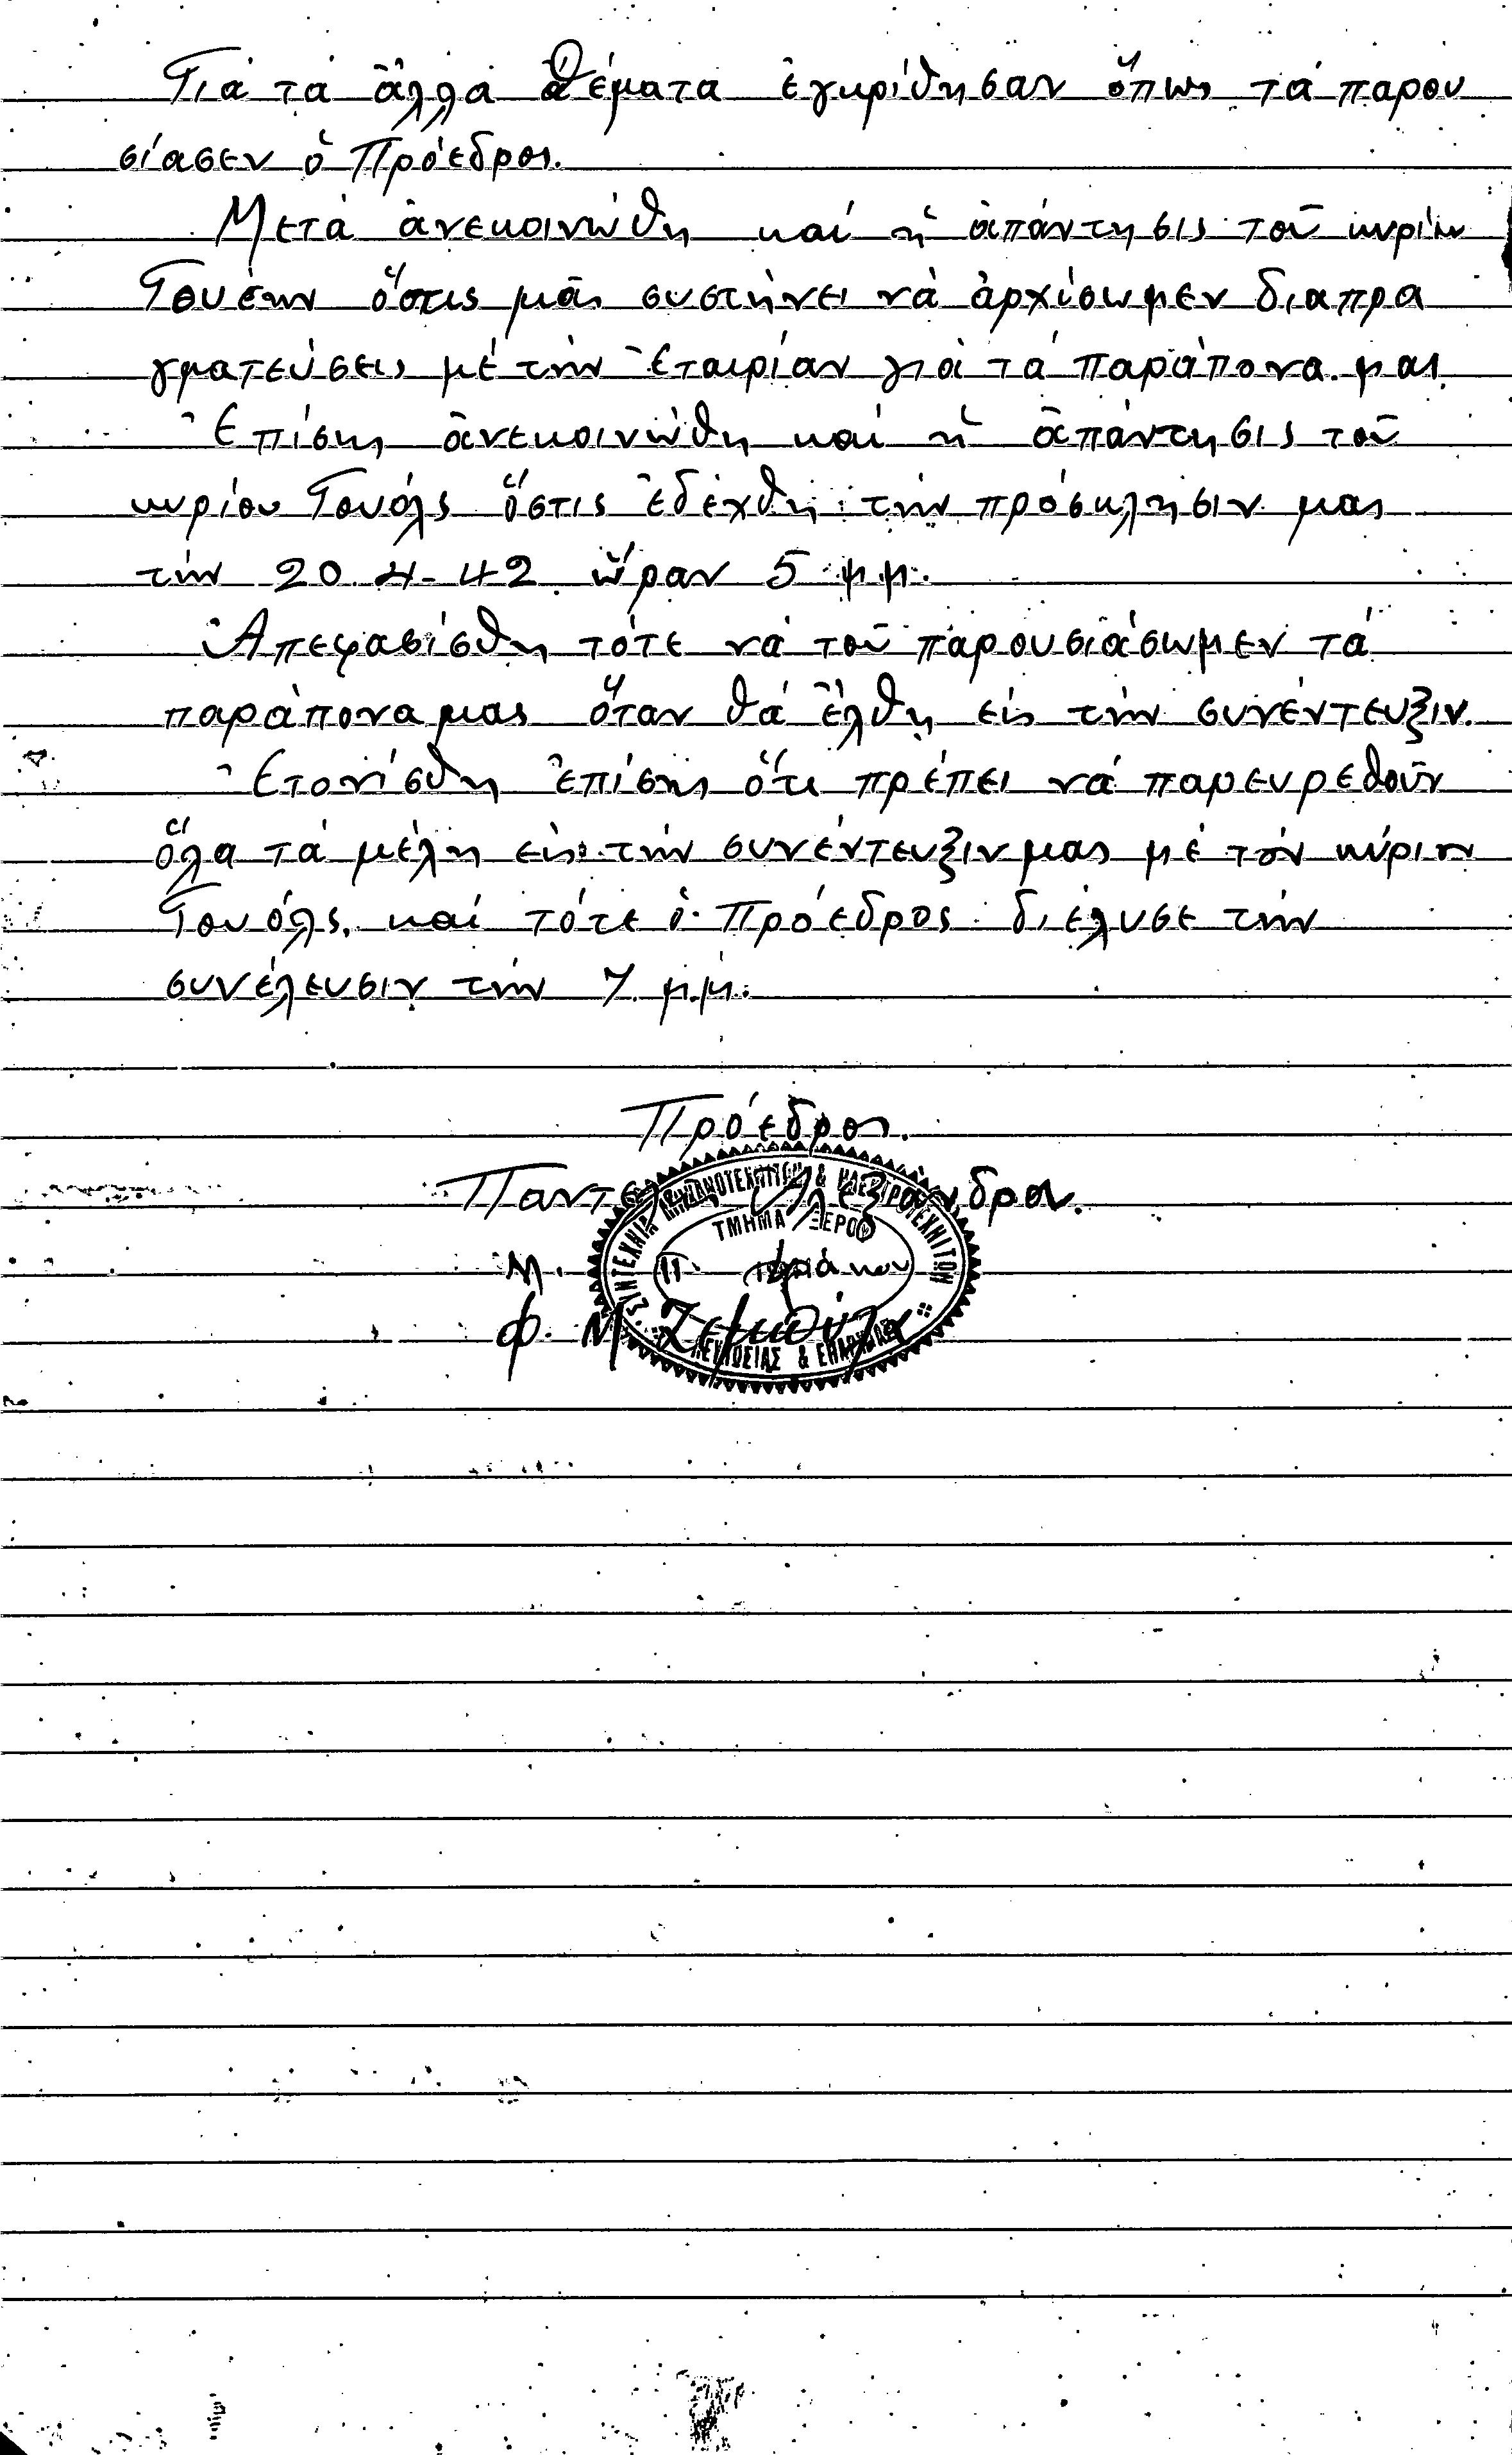 Γιά τά ἄλλα θέματα ἐγκρίθησαν ὅπως τά παρου
σίασεν ὁ Πρόεδρος.
Μετά ἀνεκοινώθη καί ἡ ἀπάντησις τοῦ κυρίου
ὅστις μᾶς συστήνει νὰ ἀρχίσωμεν διαπρα
γματεύσεις μέ τήν Ἑταιρίαν γιά τά παράπονα μας
Ἐπίσης ἀνεκοινώθη καί ἡ ἀπάντησις τοῦ
κυρίου Γουόλς ὅστις ἐδέχθη τήν πρόσκλησιν μας
τήν 20-4-42 ὥραν 5 μ.μ.
Ἀπεφασίσθη τότε νά τοῦ παρουσιάσωμεν τά
παράπονα μας ὅταν θά ἔλθη εἰς τήν συνέντευξιν.
Ἐτονίσθη ἐπίσης ὅτι πρέπει νά παρευρεθοῦν
ὅλα τά μέλη εἰς τήν συνέντευξιν μας μέ τόν κύριον
Γουόλς. καί τότε ὁ Πρόεδρος διέλυσε τήν
συνέλευσιν τήν 7 μ.μ.
Πρόεδρος.
Παντελῆς Ἀλεξάνδρου.
ΣΥΝΤΕΧΝΙΑ ΜΗΧΑΝΟΤΕΧΝΙΤΩΝ & ΗΛΕΚΤΡΟΤΕΧΝΙΤΩΝ
ΤΜΗΜΑ ΞΕΡΟΥ
ΛΕΥΚΩΣΙΑΣ & ΕΠΑΡΧΙΑΣ
Φ. Μ.